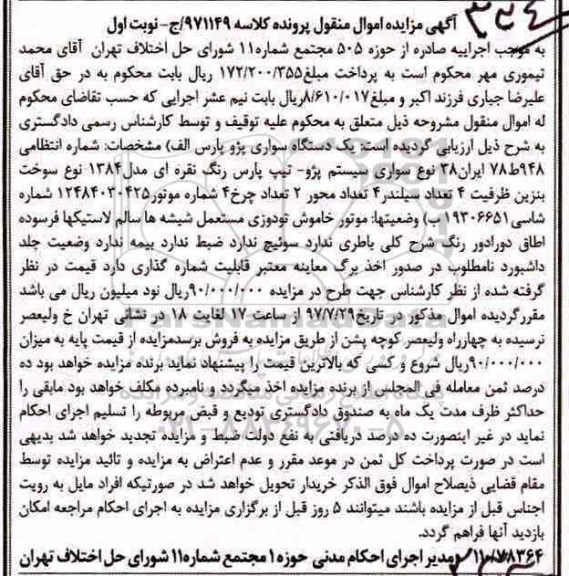 ۳۳۴
آگهی مزایده اموال منقول پرونده کلاسه ۹۷۱۱۴۹/ج- نوبت اول
به موجب اجراییه صادره از حوزه ۵۰۵ مجتمع شماره۱۱ شورای حل اختلاف تهران آقای محمد
تیموری مهر محکوم است به پرداخت مبلغ۱۷۲/۲۰۰/۳۵۵ ریال بابت محکوم به در حق آقای
علیرضا جباری فرزند اکبر و مبلغ۸/۶۱۰/۰۱۷ریال بابت نیم عشر اجرایی که حسب تقاضای محکوم
له اموال منقول مشروحه ذیل متعلق به محکوم علیه توقیف و توسط کارشناس رسمی دادگستری
به شرح ذیل ارزیابی گردیده است: یک دستگاه سواری پژو پارس الف) مشخصات: شماره انتظامی
۹۴۸ط۷۸ ایران۳۸ نوع سواری سیستم پژو- تیپ پارس رنگ نقره ای مدل۱۳۸۴ نوع سوخت
بنزین ظرفیت ۴ تعداد سیلندر۴ تعداد محور ۲ تعداد چرخ۴ شماره موتور۱۲۴۸۴۰۳۰۴۲۵ شماره
شاسی۱۹۳۰۶۶۵۱ ب) وضعیتها: موتور خاموش تودوزی مستعمل شیشه ها سالم لاستیکها فرسوده
اطاق دورادور رنگ شرح کلی باطری ندارد سوئیچ ندارد ضبط ندارد بیمه ندارد وضعیت جلد
داشبورد نامطلوب در صدور اخذ برگ معاینه معتبر قابلیت شماره گذاری دارد قیمت در نظر
گرفته شده از نظر کارشناس جهت طرح در مزایده ۹۰/۰۰۰/۰۰۰ریال نود میلیون ریال می باشد
مقررگردیده اموال مذکور در تاریخ۹۷/۷/۲۹ از ساعت ۱۷ لغایت ۱۸ در نشانی تهران خ ولیعصر
نرسیده به چهارراه ولیعصر کوچه پشن از طریق مزایده به فروش برسدمزایده از قیمت پایه به میزان
۹۰/۰۰۰/۰۰۰ریال شروع و کسی که بالاترین قیمت را پیشنهاد نماید برنده مزایده خواهد بود ده
درصد ثمن معامله فی المجلس از برنده مزایده اخذ میگردد و نامبرده مکلف خواهد بود مابقی را
حداکثر ظرف مدت یک ماه به صندوق دادگستری تودیع و قبض مربوطه را تسلیم اجرای احکام
نماید در غیر اینصورت ده درصد دریافتی به نفع دولت ضبط و مزایده تجدید خواهد شد بدیهی
است در صورت پرداخت کل ثمن در موعد مقرر و عدم اعتراض به مزایده و تائید مزایده توسط
مقام قضایی ذیصلاح اموال فوق الذکر خریدار تحویل خواهد شد در صورتیکه افراد مایل به رویت
اجناس قبل از مزایده باشند میتوانند ۵ روز قبل از برگزاری مزایده به اجرای احکام مراجعه امکان
بازدید آنها فراهم گردد.
۱۱۰/۷۸۳۶۴ مدیر اجرای احکام مدنی حوزه ۱ مجتمع شماره۱۱ شورای حل اختلاف تهران
ParsNamadData
۰۲۱-۸۸۳۴۹۶۷۰-۵